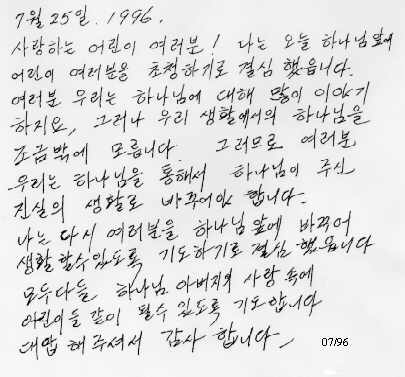 7월 25일. 1996.
사랑하는 어린이 여러분! 나는 오늘 하나님 앞에
어린이 여러분을 초청하기로 결심 했읍니다.
여러분 우리는 하나님에 대해 많이 이야기
하지요, 그러나 우리 생활에서의 하나님을
조금밖에 모릅니다 그러므로 여러분,
우리는 하나님을 통해서 하나님이 주신
진실의 생활로 바꾸어야 합니다.
나는 다시 여러분을 하나님 앞에 바꾸어
생활 할수 있도록 기도하기로 결심 했읍니다
모두 다들 하나님 아버지의 사랑 속에
어린이들 같이 될수 있도록 기도합니다
대답 해 주셔서 감사 합니다,
07/96